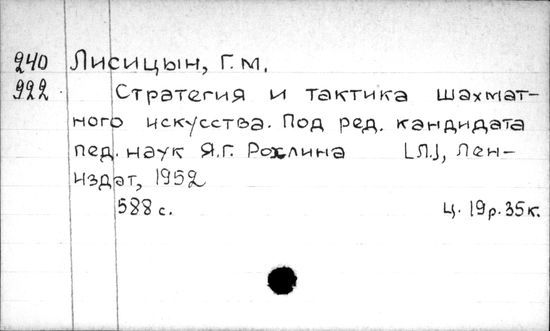 240 Лисицын, Г.М.
922. Стратегия и тактика шахмат-
ного искусства. Под ред. кандидата
пед. наук Я.Г. Рохлина [Л.], Лен-
издат, 1952
588 с. ц. 19р. 35к.